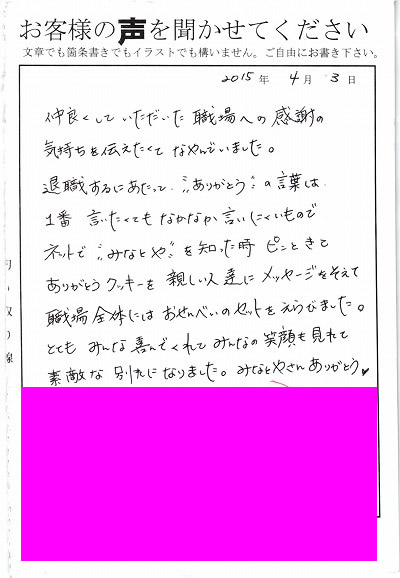 お客様の声を聞かせてください
文章でも箇条書きでもイラストでも構いません。ご自由にお書き下さい。
2015年 4月 3日
仲良くしていただいた職場への感謝の
気持ちを伝えたくてなやんでいました。
退職するにあたって〝ありがとう〟の言葉は
1番 言いたくてもなかなか言いにくいもので
ネットで〝みなとや〟を知った時 ピンときて
ありがとうクッキーを 親しい人達に メッセージをそえて
職場全体にはおせんべいのセットをえらびました。
とても みんな喜んでくれて みんなの笑顔も見れて
素敵な 別れになりました。みなとやさんありがとう♥
り線